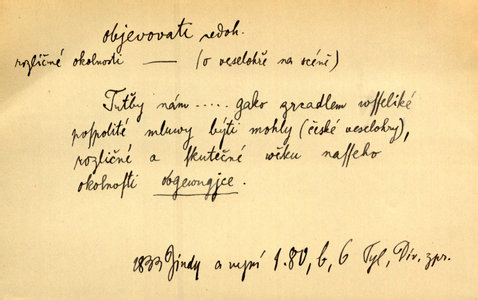 objevovati nedok.
rozličné okolnosti —— (o veselohře na scéně)
Tutby nám ..... gako zrcadlem wsseliké
pospolité mluwy býti mohly (české veselohry),
rozličné a skutečné wěku nasseho
okolnosti obgewugjce.
1833 Jindy a nyní 1.80, b, 6 Tyl, Div. zpr.